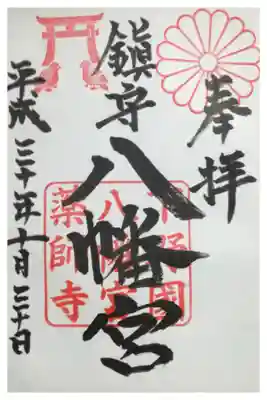 奉拝
鎮守
八幡宮
平成三十年十月三十日
下野國
八幡宮
薬師寺